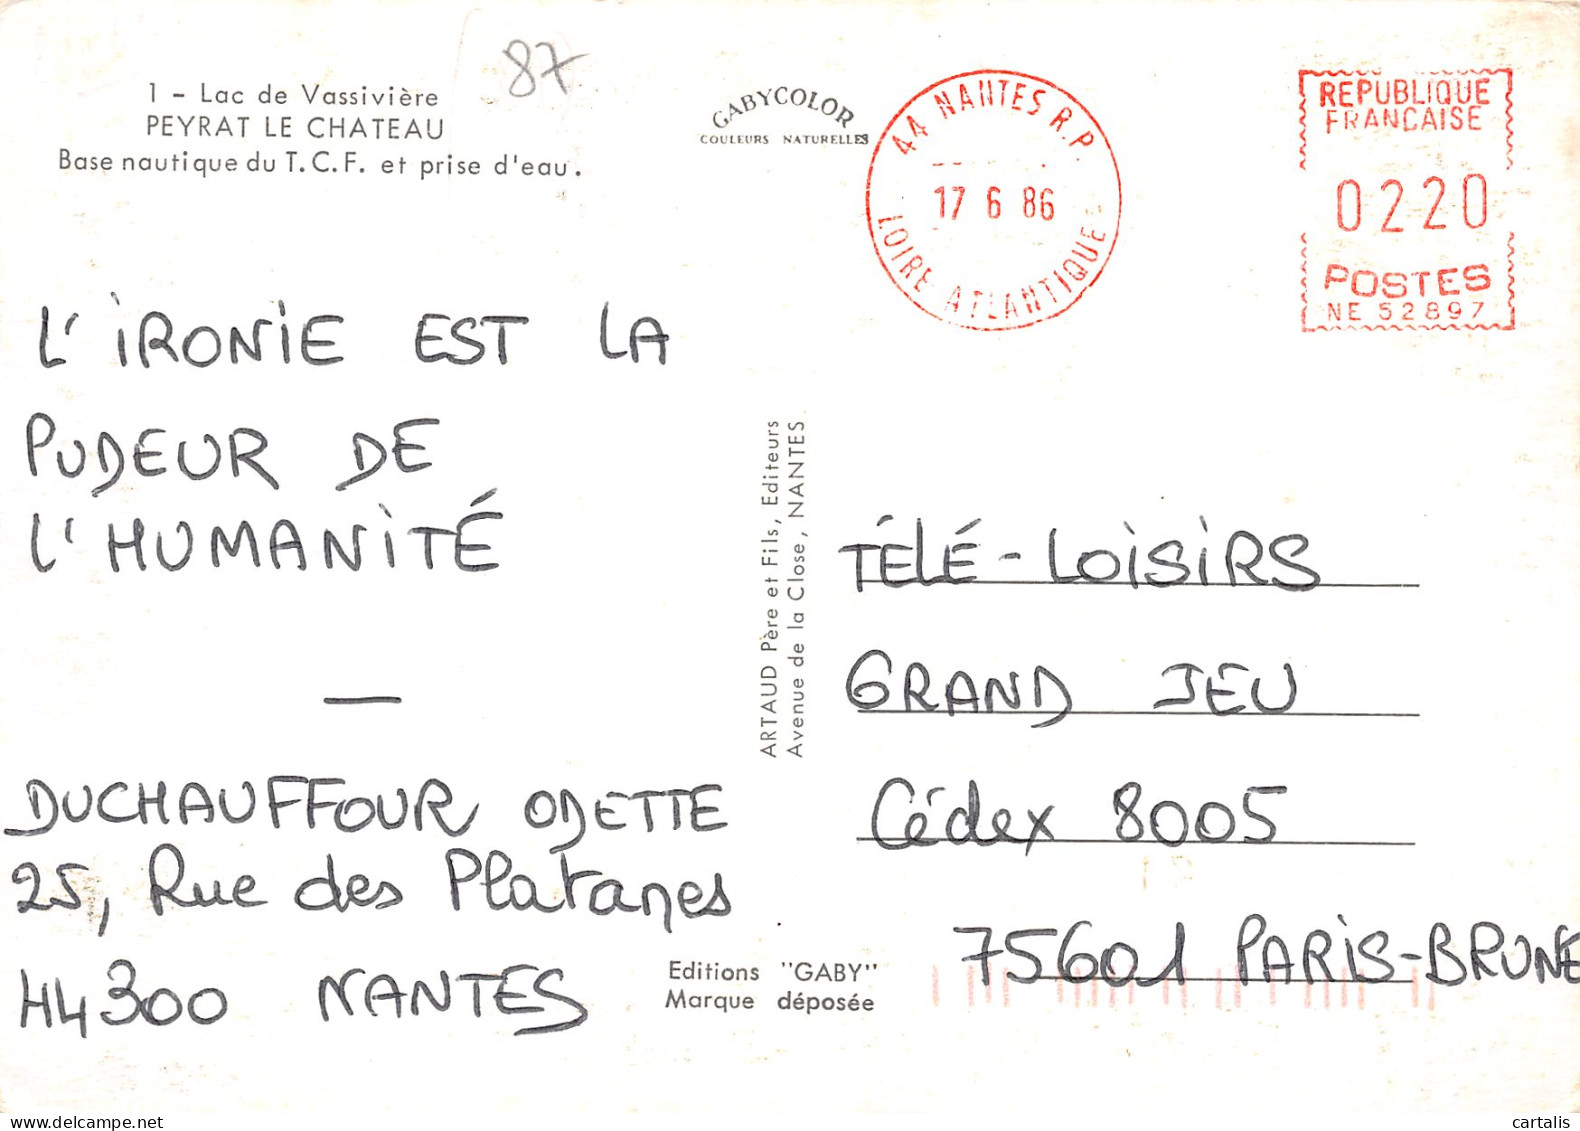 87
1 - Lac de Vassivière
PEYRAT LE CHATEAU
Base nautique du T.C.F. et prise d'eau.
GABYCOLOR
COULEURS NATURELLES
44 NANTES R.P.
17 6 86
LOIRE ATLANTIQUE
REPUBLIQUE
FRANCAISE
0220
POSTES
NE 52897
L'IRONIE EST LA
PUDEUR DE
L'HUMANITÉ
—
DUCHAUFFOUR ODETTE
25, Rue des Platanes
44300 NANTES
ARTAUD Père et Fils, Editeurs
Avenue de la Close, NANTES
TÉLÉ-LOISIRS
GRAND JEU
Cédex 8005
75601 PARIS-BRUNE
Editions "GABY"
Marque déposée
delcampe.net
cartalis